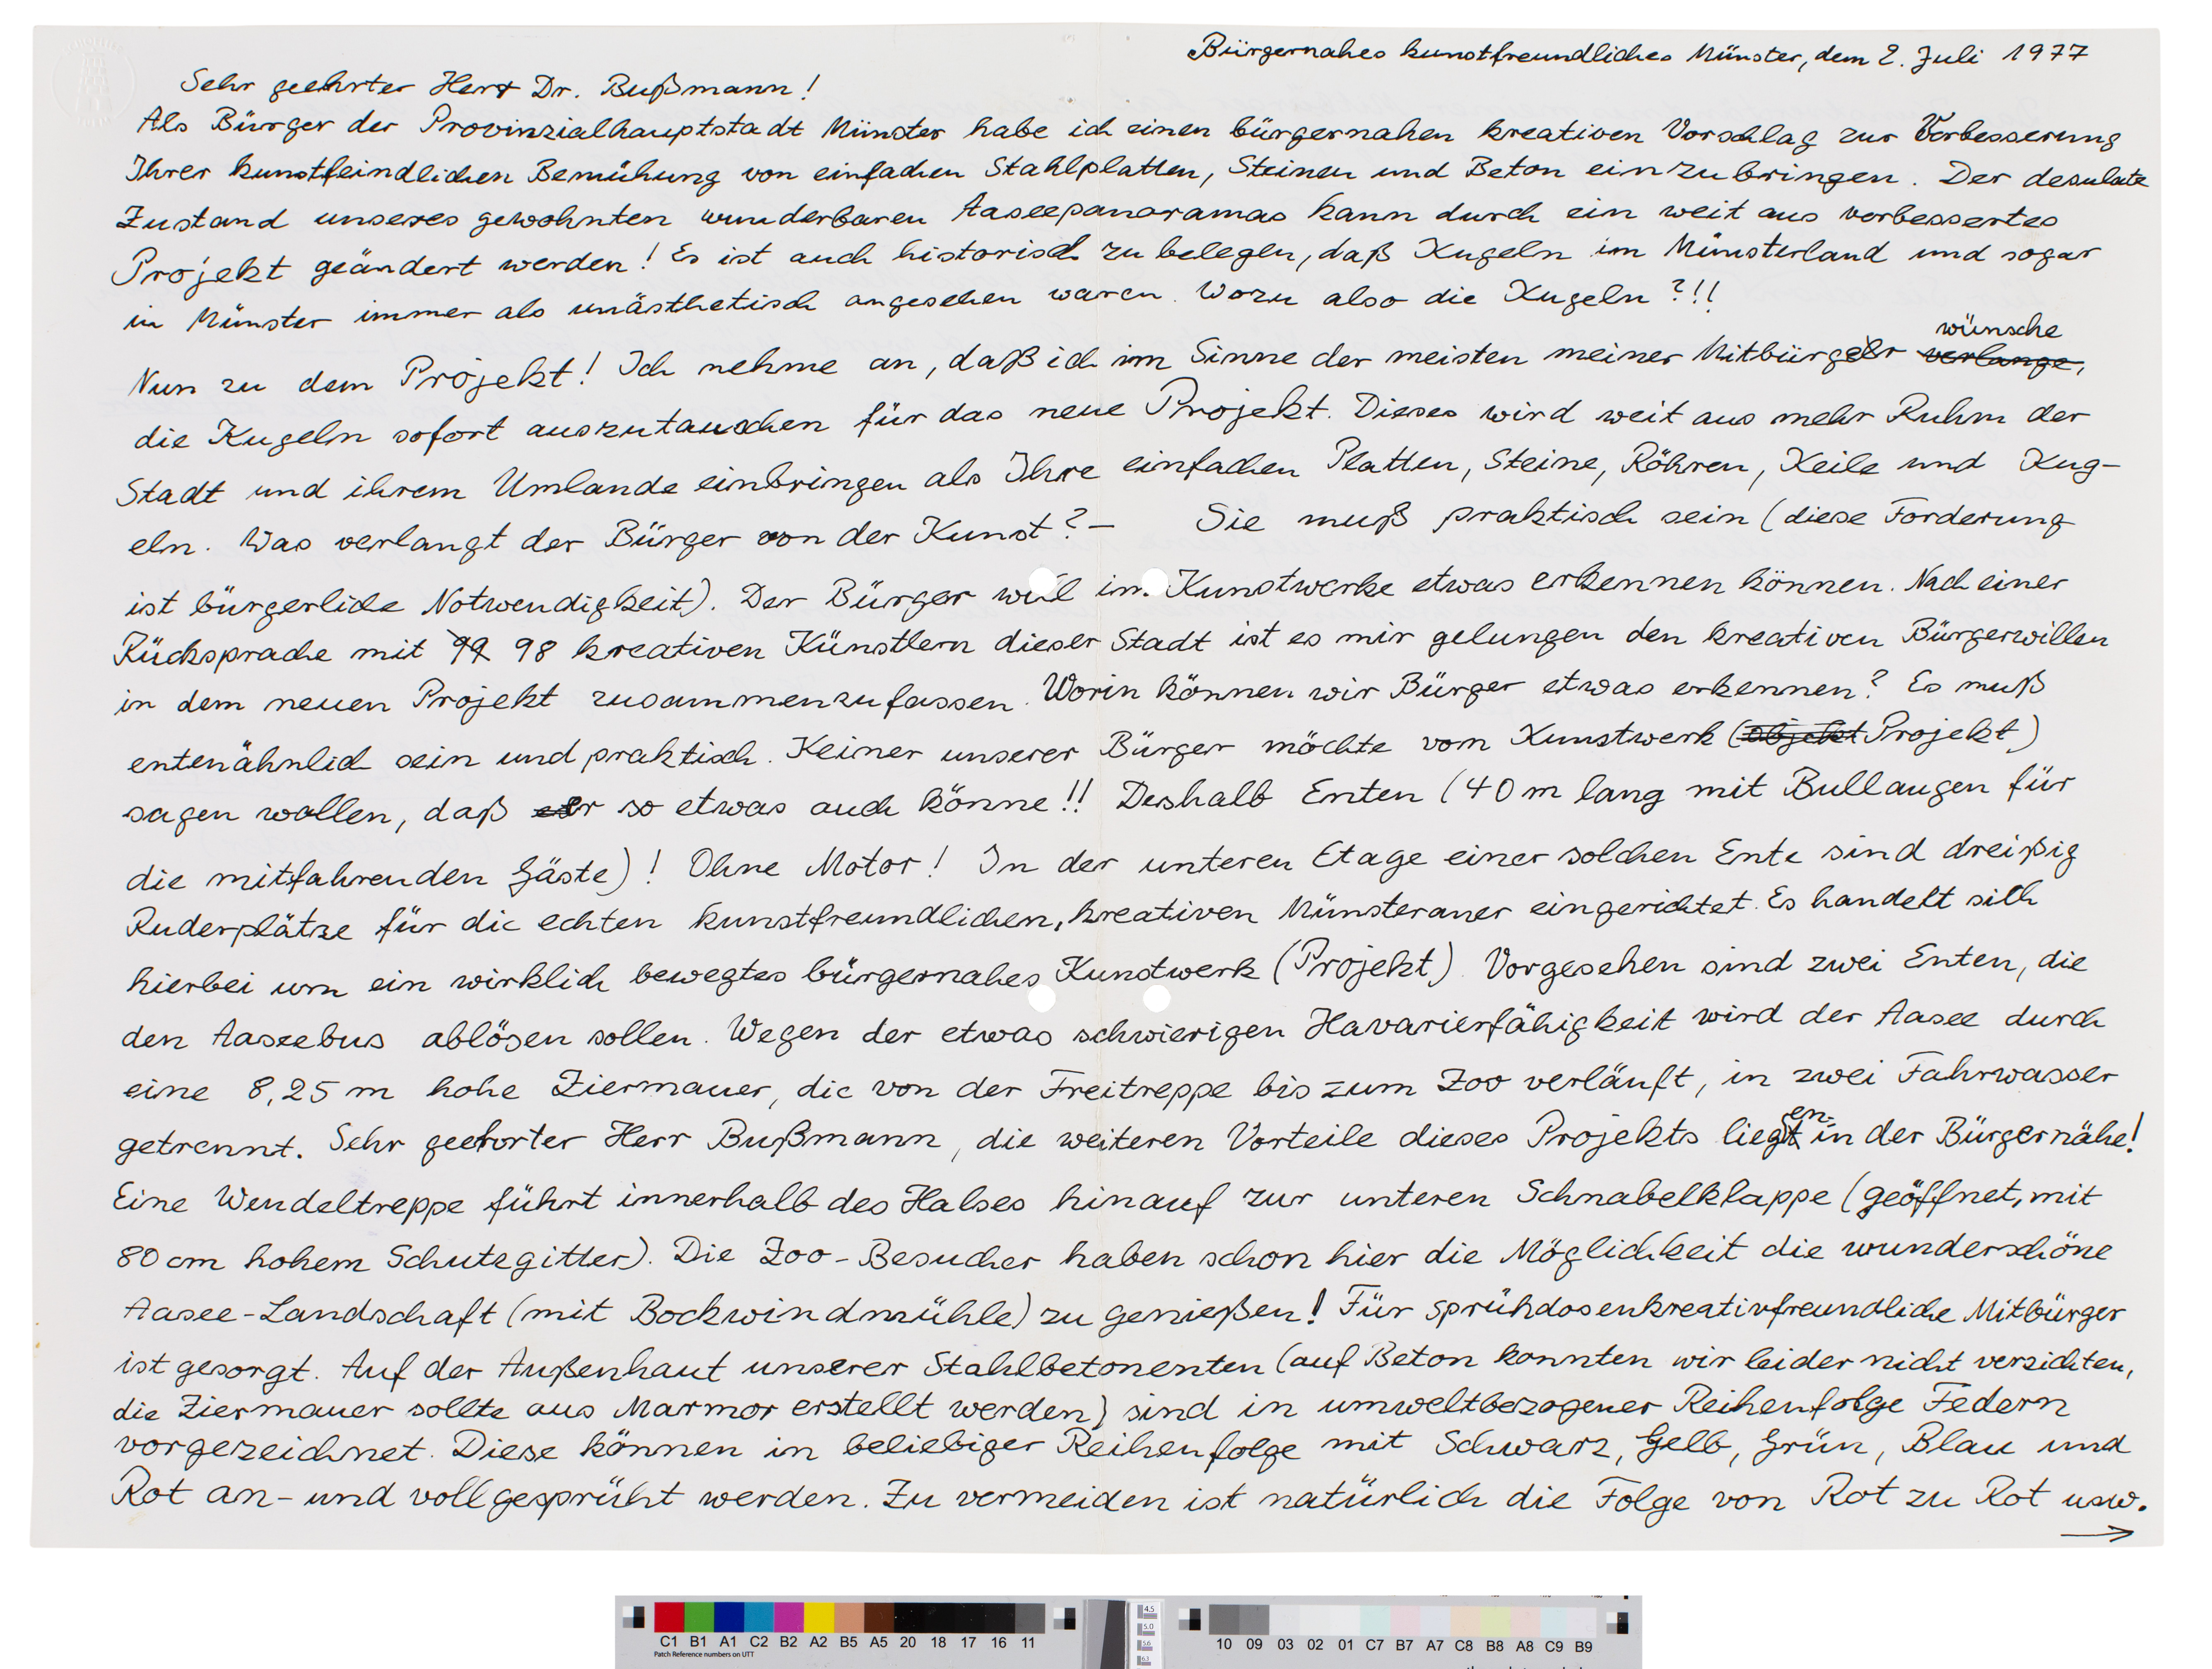 Bürgernahes kunstfreundliches Münster, dem 2. Juli 1977
Sehr geehrter Herr Dr. Bußmann!
Als Bürger der Provinzialhauptstadt Münster habe ich einen bürgernahen kreativen Vorschlag zur Verbesserung
Ihrer kunstfeindlichen Bemühung von einfachen Stahlplatten, Steinen und Beton einzubringen. Der desulate
Zustand unseres gewohnten wunderbaren Aaseepanoramas kann durch ein weit aus verbessertes
Projekt geändert werden! Es ist auch historisch zu belegen, daß Kugeln im Münsterland und sogar
in Münster immer als unästhetisch angesehen waren. Wozu also die Kugeln?!!
wünsche
Nun zu dem Projekt! Ich nehme an, daß ich im Sinne der meisten meiner Mitbürger verlange,
die Kugeln sofort auszutauschen für das neue Projekt. Dieses wird weit aus mehr Ruhm der
Stadt und ihrem Umlande einbringen als Ihre einfachen Platten, Steine, Röhren, Keile und Kug-
eln. Was verlangt der Bürger von der Kunst?- Sie muß praktisch sein (diese Forderung
ist bürgerliche Notwendigkeit). Der Bürger will im Kunstwerke etwas erkennen können. Nach einer
Rücksprache mit 99 98 kreativen Künstlern dieser Stadt ist es mir gelungen den kreativen Bürgerwillen
in dem neuen Projekt zusammenzufassen. Worin können wir Bürger etwas erkennen? Es muß
entenähnlich sein und praktisch. Keiner unserer Bürger möchte vom Kunstwerk (objekt Projekt)
sagen wollen, daß er so etwas auch könne!! Deshalb Enten (40 m lang mit Bullaugen für
die mitfahrenden Gäste)! Ohne Motor! In der unteren Etage einer solchen Ente sind dreißig
Ruderplätze für die echten kunstfreundlichen, kreativen Münsteraner eingerichtet. Es handelt sich
hierbei um ein wirklich bewegtes bürgernahes Kunstwerk (Projekt). Vorgesehen sind zwei Enten, die
den Aaseebus ablösen sollen. Wegen der etwas schwierigen Havarierfähigkeit wird der Aasee durch
eine 8,25 m hohe Ziermauer, die von der Freitreppe bis zum Zoo verläuft, in zwei Fahrwasser
getrennt. Sehr geehrter Herr Bußmann, die weiteren Vorteile dieses Projekts liegen in der Bürgernähe!
Eine Wendeltreppe führt innerhalb des Halses hinauf zur unteren Schnabelklappe (geöffnet, mit
80 cm hohem Schutzgitter). Die Zoo-Besucher haben schon hier die Möglichkeit die wunderschöne
Aasee-Landschaft (mit Bockwindmühle) zu genießen! Für sprühdosenkreativfreundliche Mitbürger
ist gesorgt. Auf der Außenhaut unserer Stahlbetonenten (auf Beton konnten wir leider nicht verzichten,
die Ziermauer sollte aus Marmor erstellt werden) sind in umweltbezogener Reihenfolge Federn
vorgezeichnet. Diese können in beliebiger Reihenfolge mit Schwarz, Gelb, Grün, Blau und
Rot an- und vollgesprüht werden. Zu vermeiden ist natürlich die Folge von Rot zu Rot usw.
→
C1 B1 A1 C2 B2 A2 B5 A5 20 18 17 16 11
10 09 03 02 01 C7 B7 A7 C8 B8 A8 C9 B9
Patch Reference numbers on UTT
4.5
5.0
5.6
6.3